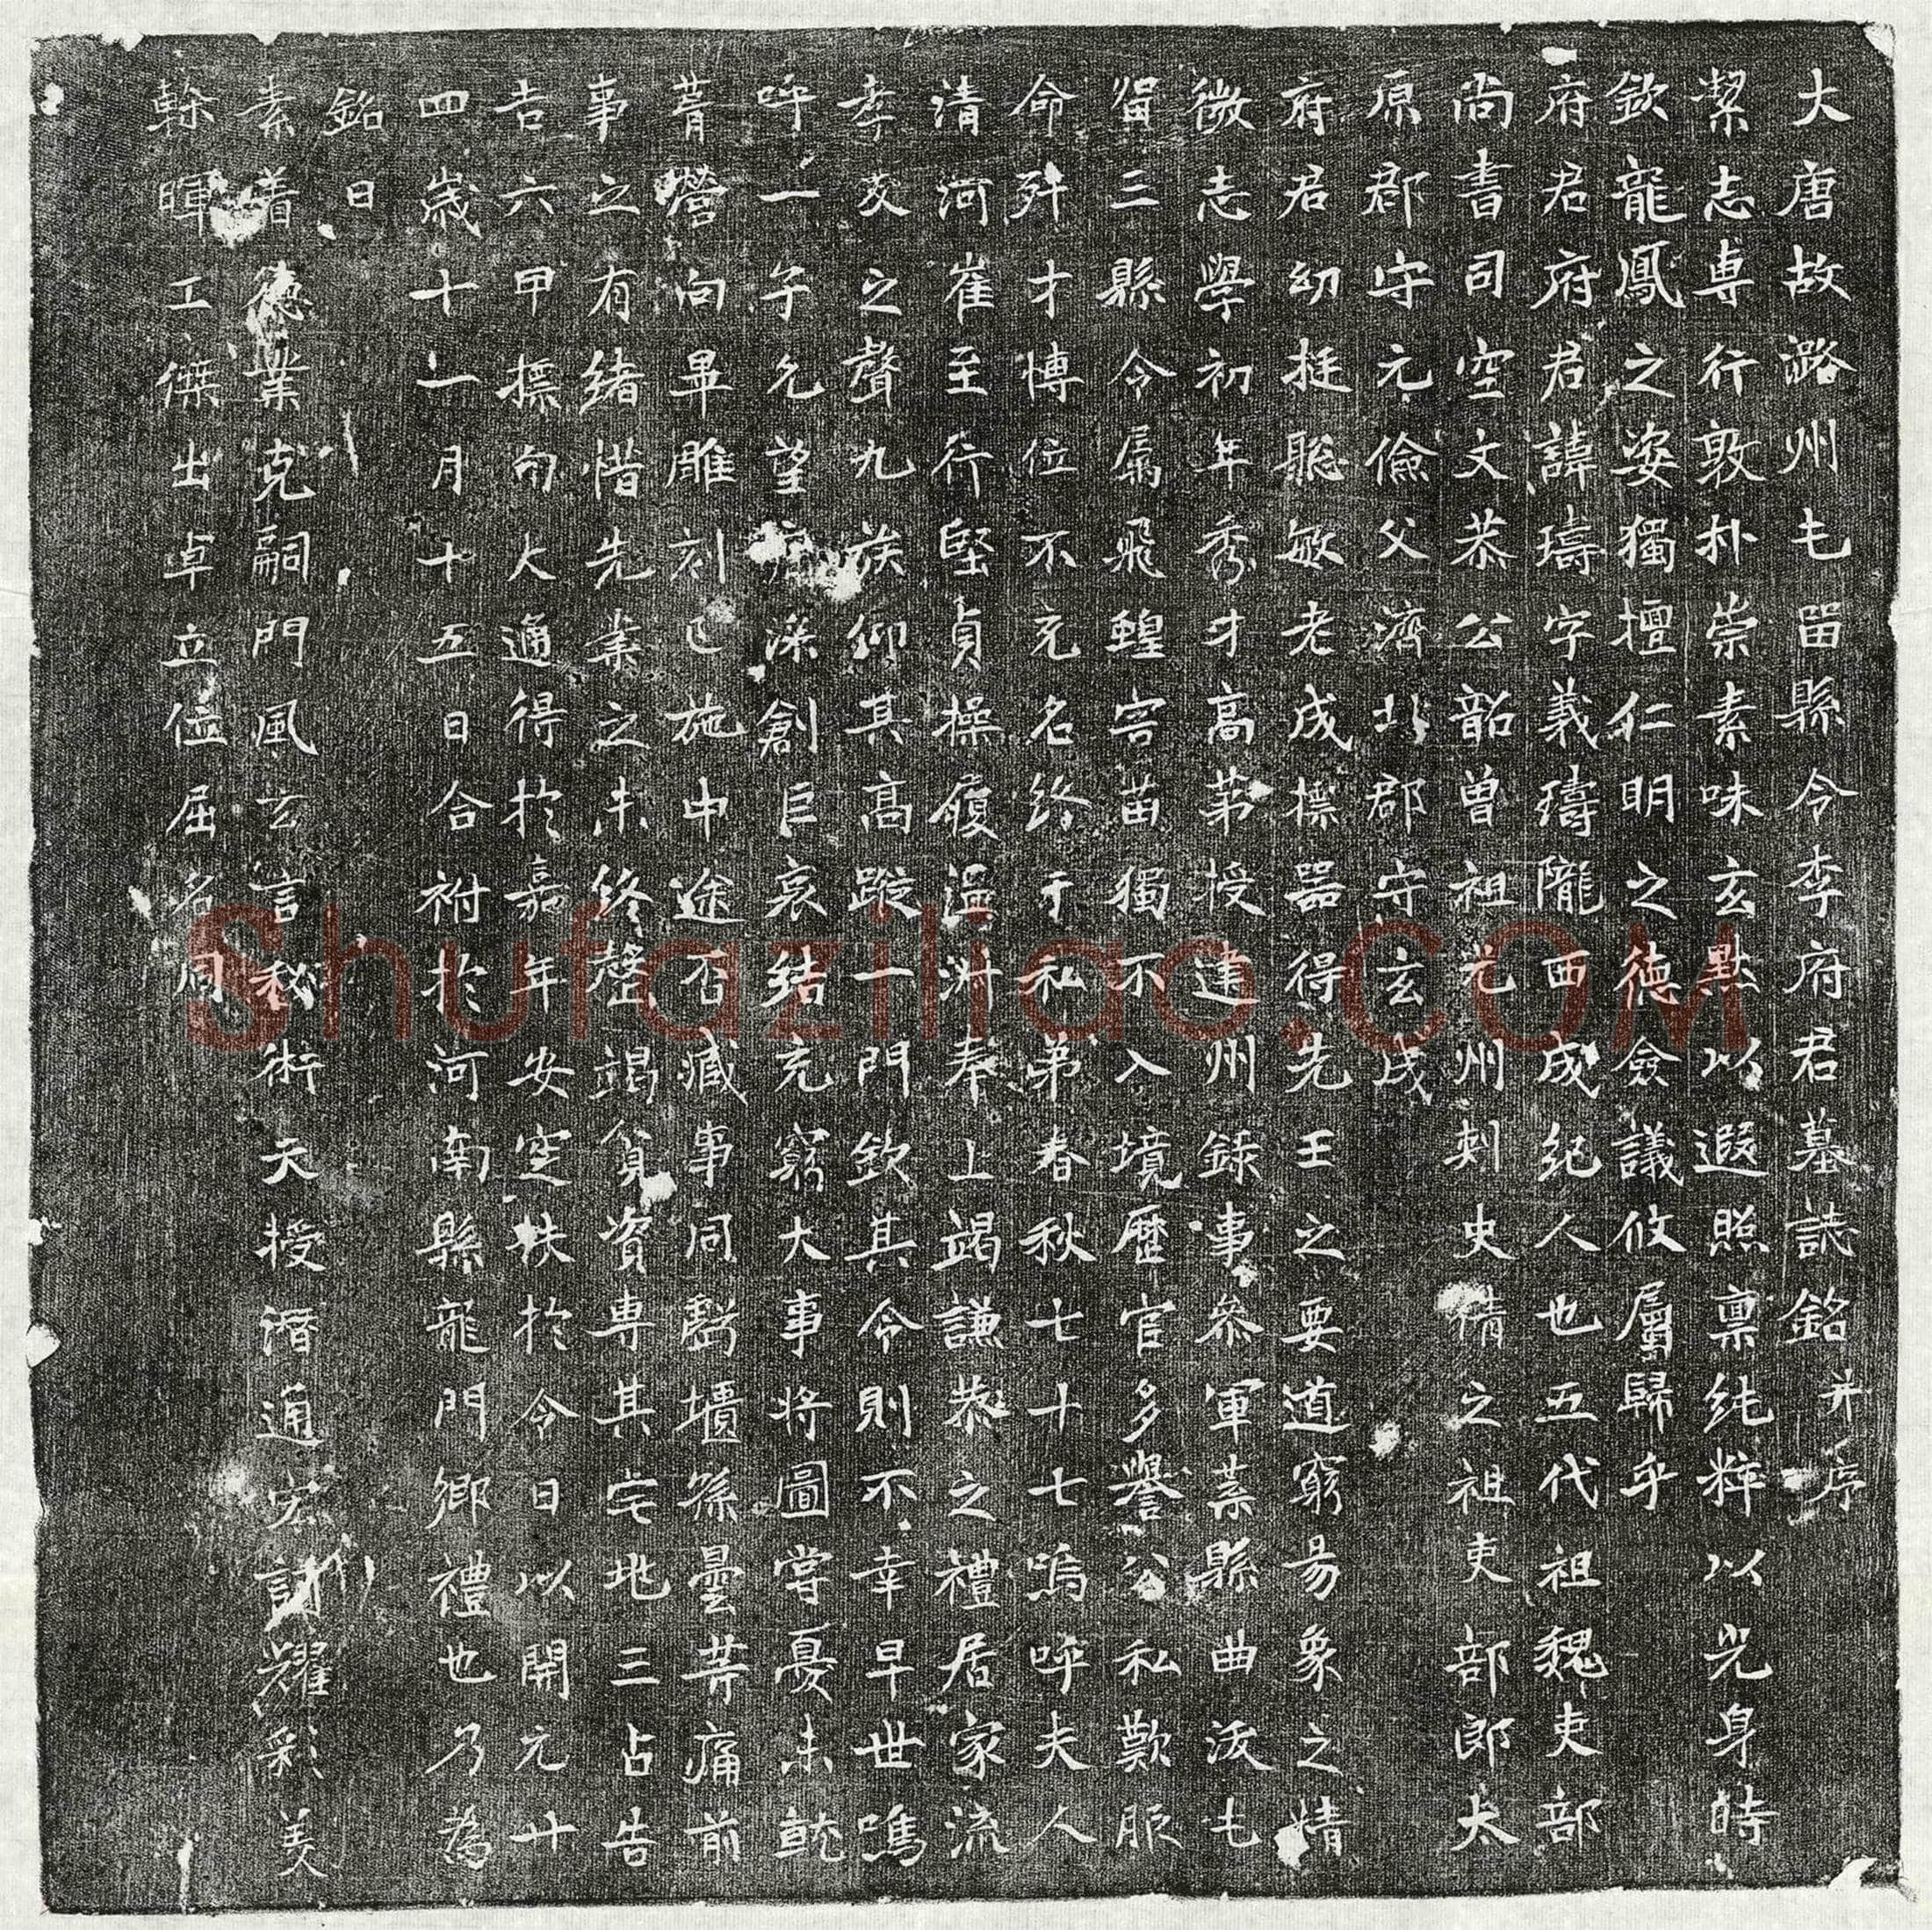 大唐故潞州屯留縣令李府君墓誌銘并序
絜志專行敦朴崇素味玄默以遐照禀純粹以光身時
欽龍鳳之姿獨擅仁明之德僉議攸屬歸乎
府君府君諱璹字義璹隴西成紀人也五代祖魏吏部
尚書司空文恭公韶曾祖光州刺史倩之祖吏部郎太
原郡守元儉父濟北郡守玄成
府君幼挺聡敏老成摽器得先王之要道窮易象之精
微志學初年秀才高第授建州錄事叅軍葉縣曲沃屯
留三縣令属飛蝗害苗獨不入境歷官多譽公私歎服
命舛才博位不充名終于私弟春秋七十七嗚呼夫人
清河崔至行堅貞操履溫淑奉上竭謙恭之禮居家流
孝友之聲九族仰其高蹤一門欽其令則不幸早世嗚
呼一子允望深創巨哀結充窮大事將圖嘗憂未就
菁營向畢雕刻已施中途否臧事同毀櫝孫曇芳痛前
事之有緒惜先業之未終罄竭貧資專其宅兆三占告
吉六甲摽勾大通得於嘉年安空秩於令日以開元十
四歲十一月十五日合祔於河南縣龍門鄉禮也乃為
銘曰
素着德業克嗣門風玄言秘術天授潛通宏詞耀彩美
翰暉工傑出卓立位屈名
Shufaziliao.COM